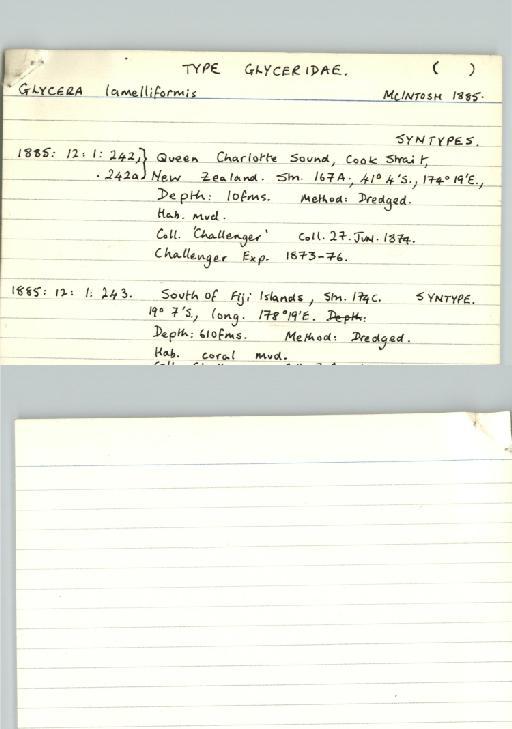 TYPE GLYCERIDAE. ( )
GLYCERA lamelliformis McINTOSH 1885.
SYNTYPES.
1885: 12: 1: 242,} Queen Charlotte Sound, Cook Strait,
. 242a} New Zealand. Stn. 167A., 41° 4'S., 174° 19'E.,
Depth: 10fms. Method: Dredged.
Hab. mud.
Coll. 'Challenger' Coll. 27. Jun. 1874.
Challenger Exp. 1873-76.
1885: 12: 1: 243. South of Fiji Islands, Stn. 174C. SYNTYPE.
19° 7'S., long. 178°19'E. Depth:
Depth: 610fms. Method: Dredged.
Hab. coral mud.